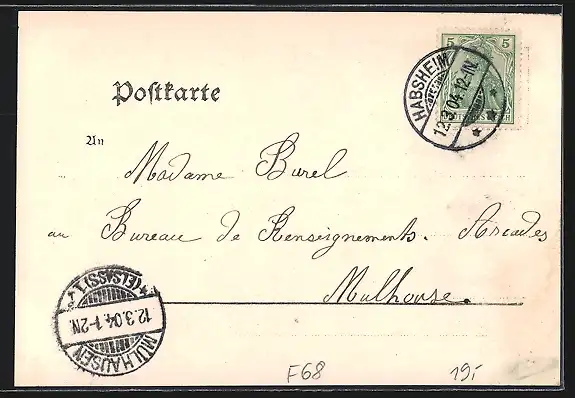 Postkarte
5 5
HABSHEIM
12.3.04.12-1N.
An
Madame Burel
au Bureau de Renseignements. Arcades
Mulhouse.
MÜLHAUSEN
12.3.04.1-2N.
*(ELSASS)1.*
F68
19,-